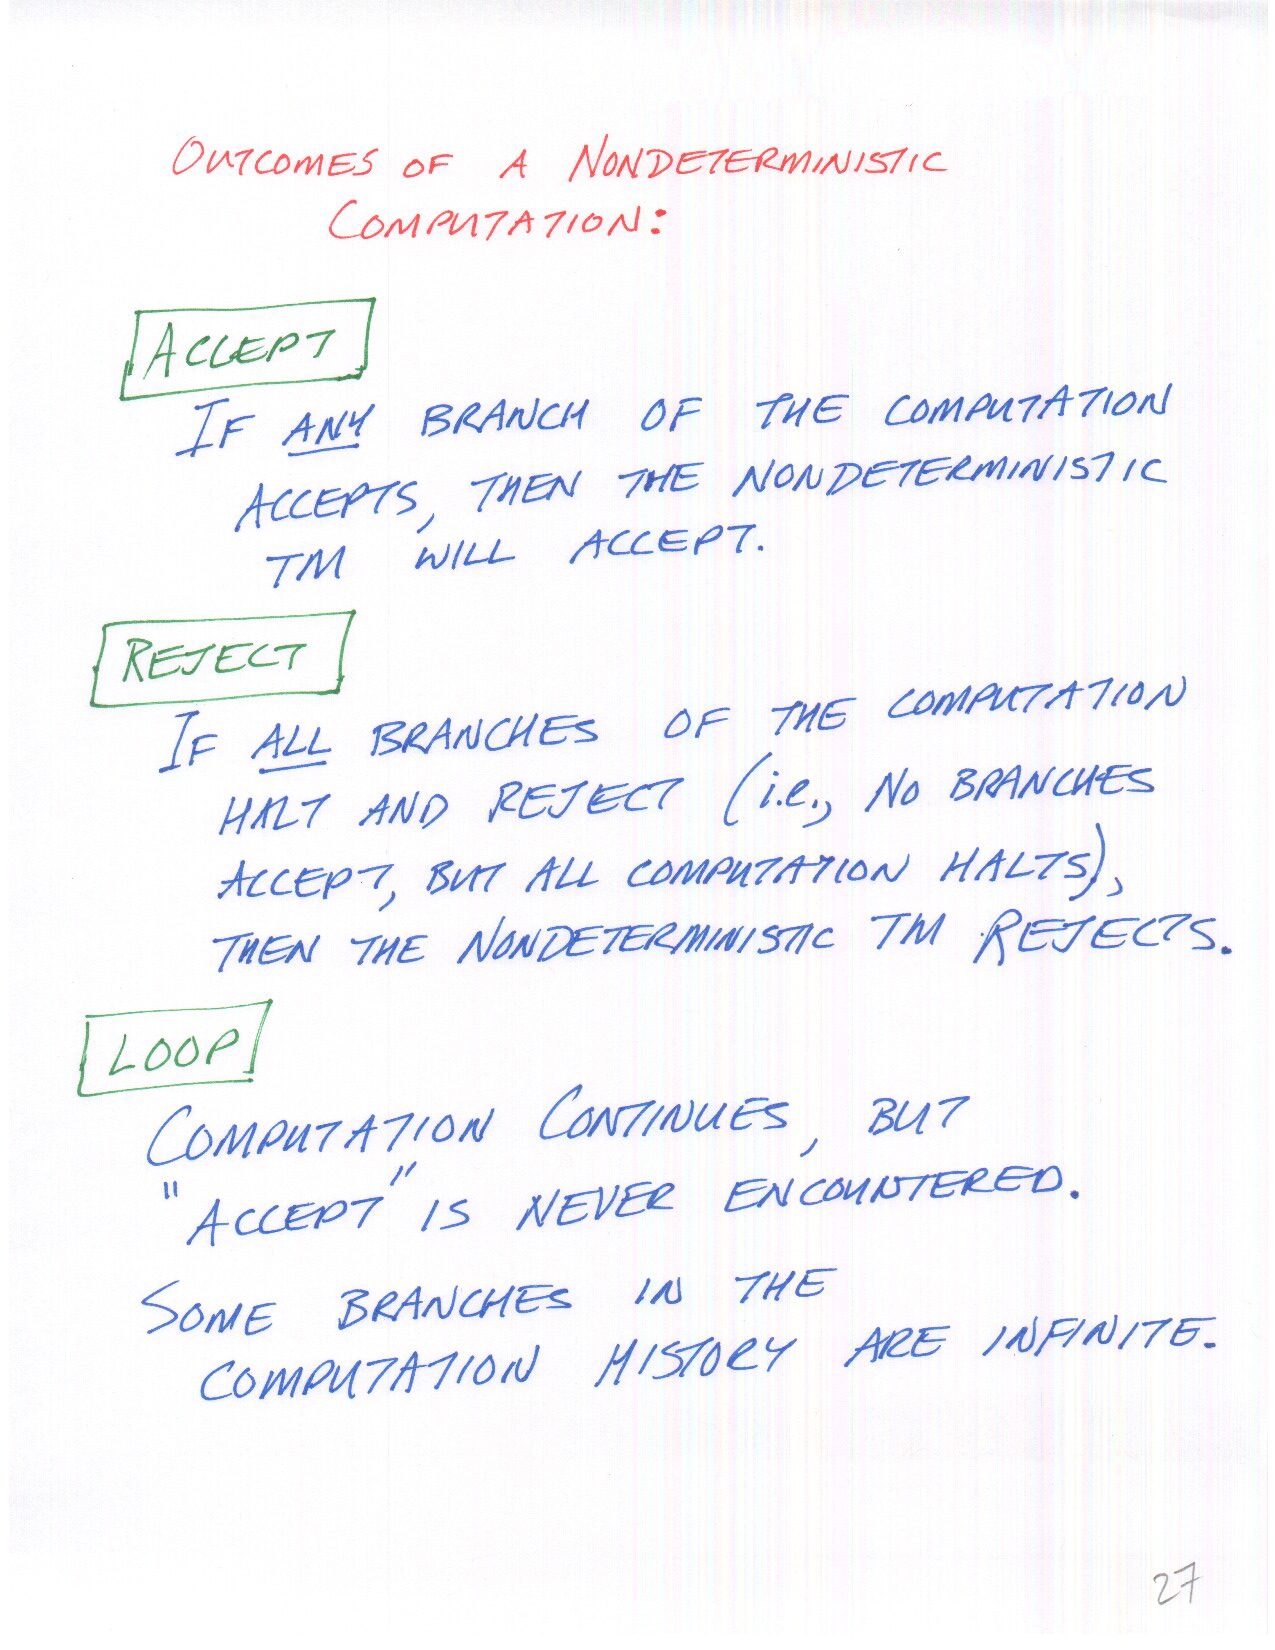 OUTCOMES OF A NONDETERMINISTIC
COMPUTATION:
ACCEPT
IF ANY BRANCH OF THE COMPUTATION
ACCEPTS, THEN THE NONDETERMINISTIC
TM WILL ACCEPT.
REJECT
IF ALL BRANCHES OF THE COMPUTATION
HALT AND REJECT (i.e., NO BRANCHES
ACCEPT, BUT ALL COMPUTATION HALTS),
THEN THE NONDETERMINISTIC TM REJECTS.
LOOP
COMPUTATION CONTINUES, BUT
"ACCEPT" IS NEVER ENCOUNTERED.
SOME BRANCHES IN THE
COMPUTATION HISTORY ARE INFINITE.
27